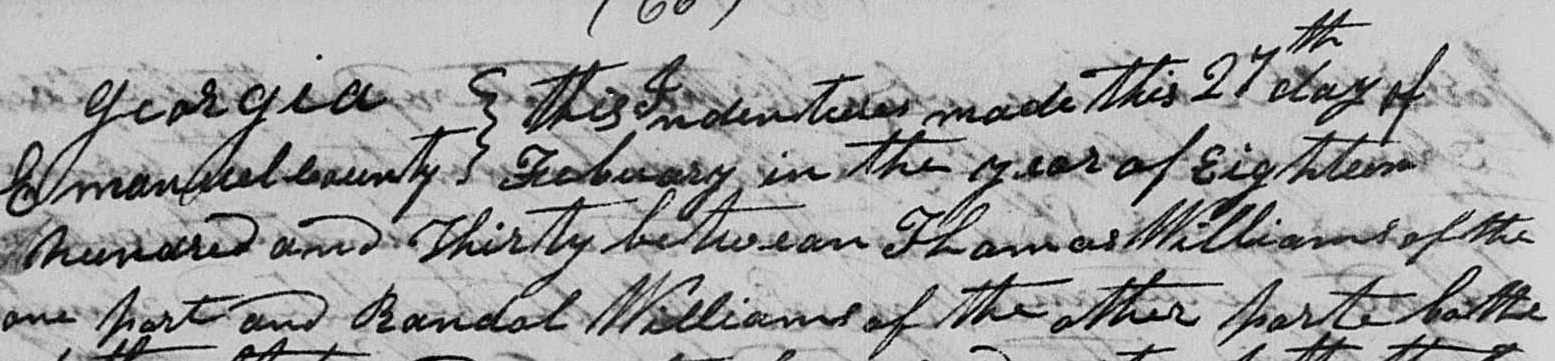 (66)
Georgia } this Indentures made this 27th day of
Emanuel County } Febuary in the year of Eighteen
hundred and Thirty betwean Thomas Williams of the
one part and Randol Williams of the other parte bothe